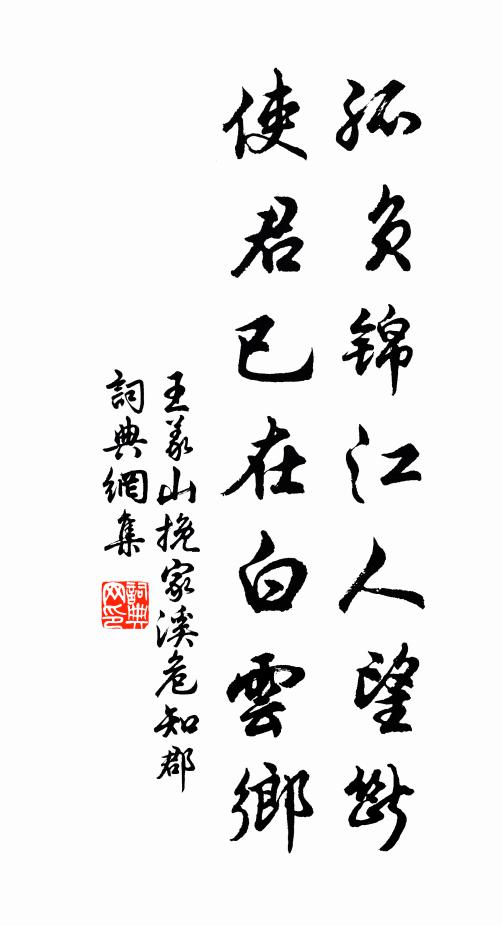 孤負錦江人望斷
使君已在白雲鄉
王義山挽家溪危知郡
詞典網集
詞典网印